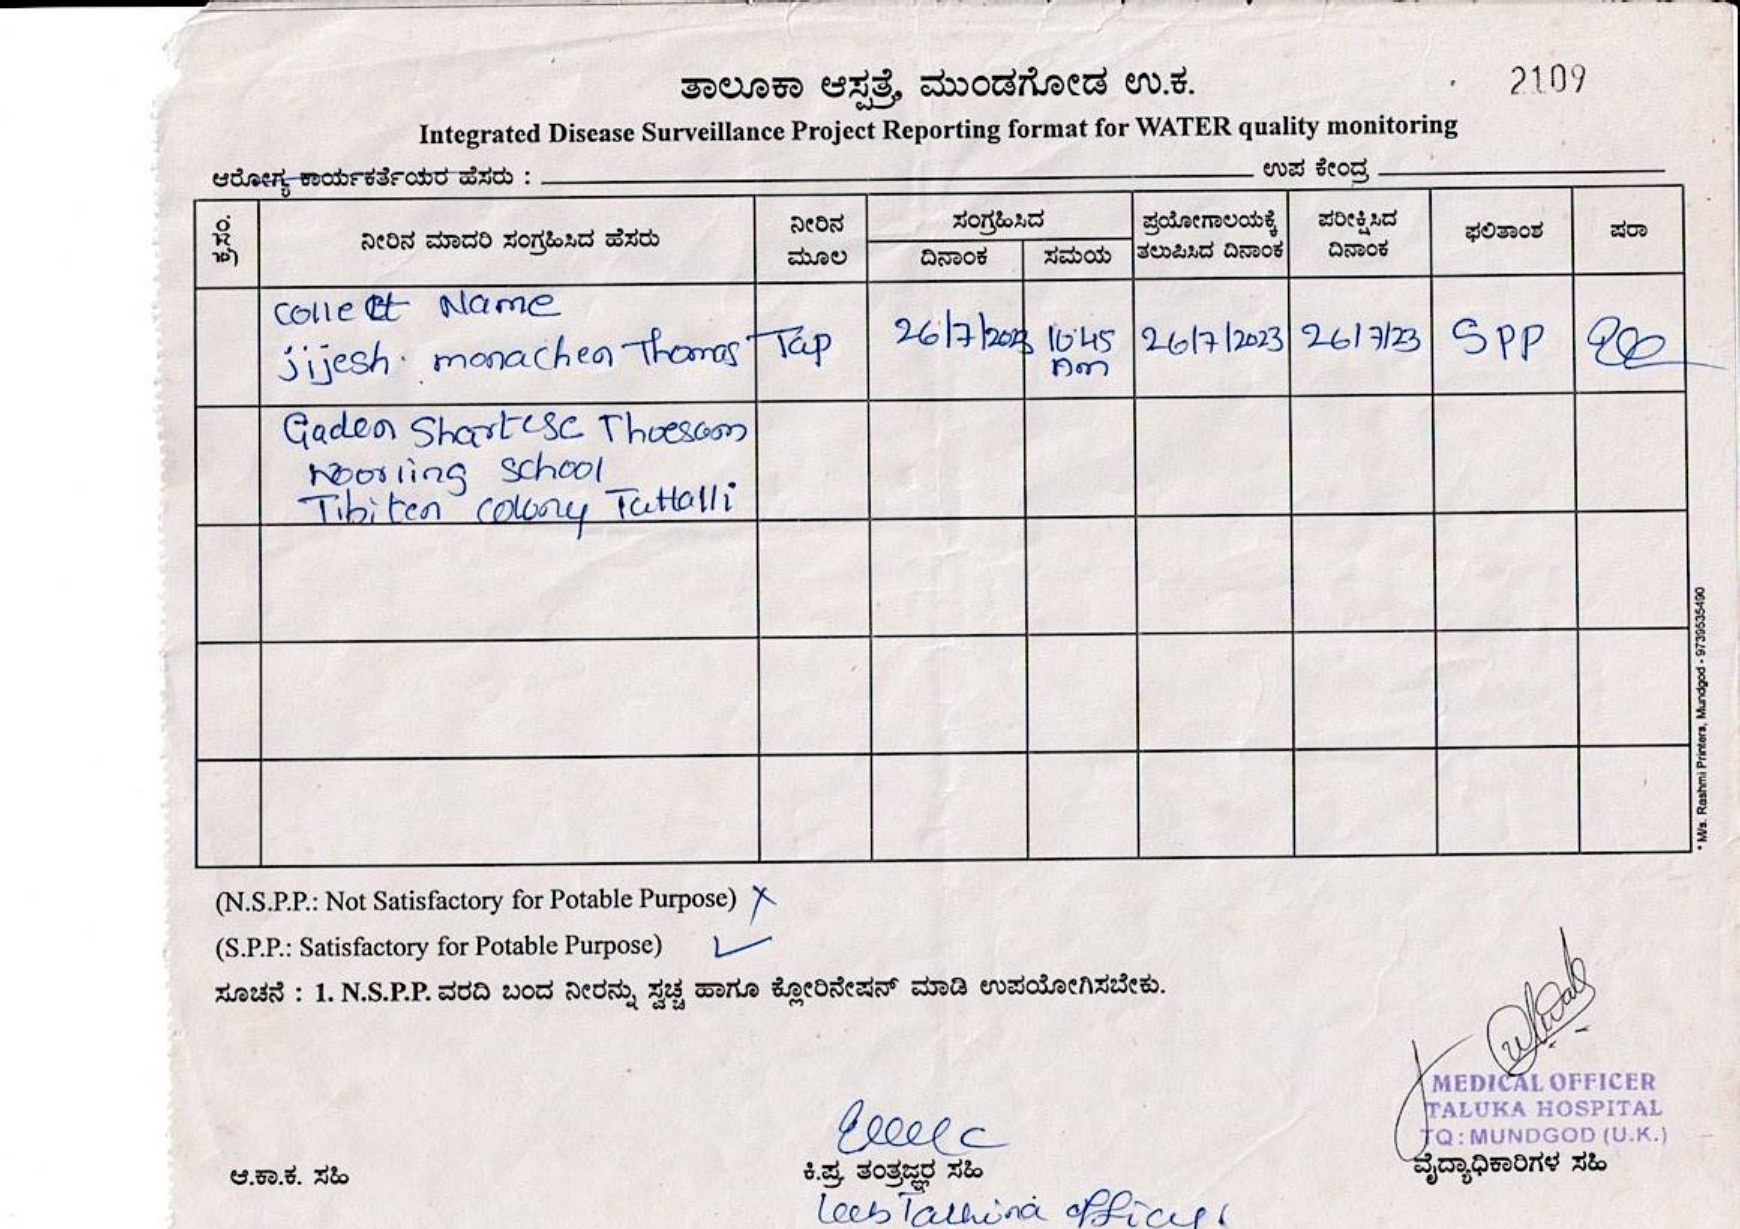 ತಾಲೂಕಾ ಆಸ್ಪತ್ರೆ, ಮುಂಡಗೋಡ ಉ.ಕ.
2109
Integrated Disease Surveillance Project Reporting format for WATER quality monitoring
ಆರೋಗ್ಯ ಕಾರ್ಯಕರ್ತೆಯರ ಹೆಸರು : ಉಪ ಕೇಂದ್ರ
ಕ್ರ.ಸಂ. ನೀರಿನ ಮಾದರಿ ಸಂಗ್ರಹಿಸಿದ ಹೆಸರು ನೀರಿನ ಮೂಲ ಸಂಗ್ರಹಿಸಿದ ದಿನಾಂಕ ಸಮಯ ಪ್ರಯೋಗಾಲಯಕ್ಕೆ ತಲುಪಿಸಿದ ದಿನಾಂಕ ಪರೀಕ್ಷಿಸಿದ ದಿನಾಂಕ ಫಲಿತಾಂಶ ಷರಾ
Name
jijesh. monachen Thomas Tap 26/7/2023 10:45 Am 26/7/2023 26/7/23 SPP
Gaden Shartse
school
Tibiten colony Tattalli
(N.S.P.P.: Not Satisfactory for Potable Purpose) ✗
(S.P.P.: Satisfactory for Potable Purpose) ✓
ಸೂಚನೆ : 1. N.S.P.P. ವರದಿ ಬಂದ ನೀರನ್ನು ಸ್ವಚ್ಚ ಹಾಗೂ ಕ್ಲೋರಿನೇಷನ್ ಮಾಡಿ ಉಪಯೋಗಿಸಬೇಕು.
MEDICAL OFFICER
TALUKA HOSPITAL
TQ: MUNDGOD (U.K.)
ಆ.ಕಾ.ಕ. ಸಹಿ ಕಿ.ಪ್ರ ತಂತ್ರಜ್ಞರ ಸಹಿ ವೈದ್ಯಾಧಿಕಾರಿಗಳ ಸಹಿ
* M/s. Rashmi Printers, Mundgod - 9739535490